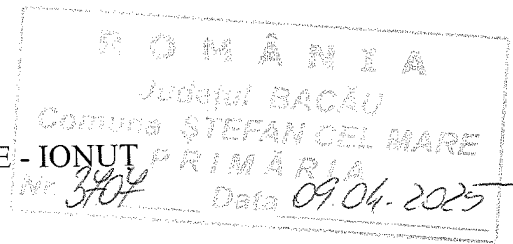 ROMÂNIA
Județul BACĂU
Comuna ȘTEFAN CEL MARE
E - IONUȚ
PRIMĂRIA
Nr. 3707 Data 09.04.2025